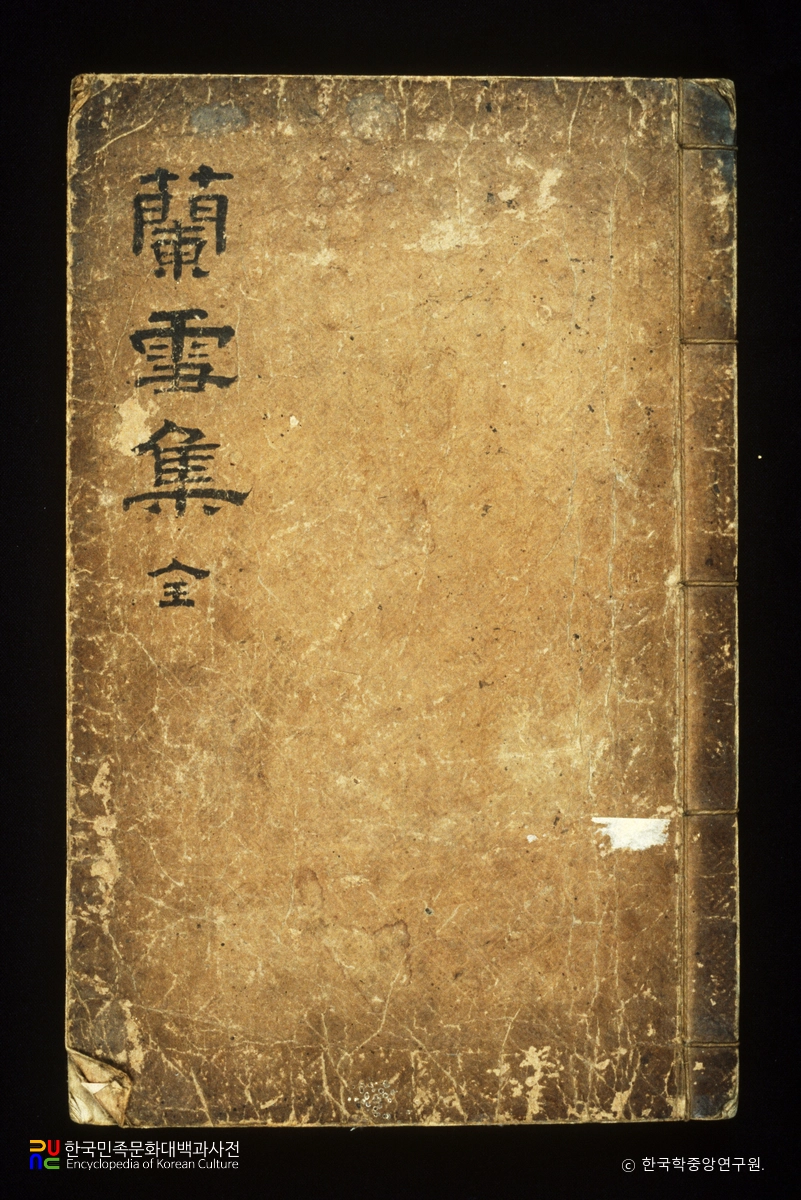 蘭雪集 全
한국민족문화대백과사전
Encyclopedia of Korean Culture
© 한국학중앙연구원.